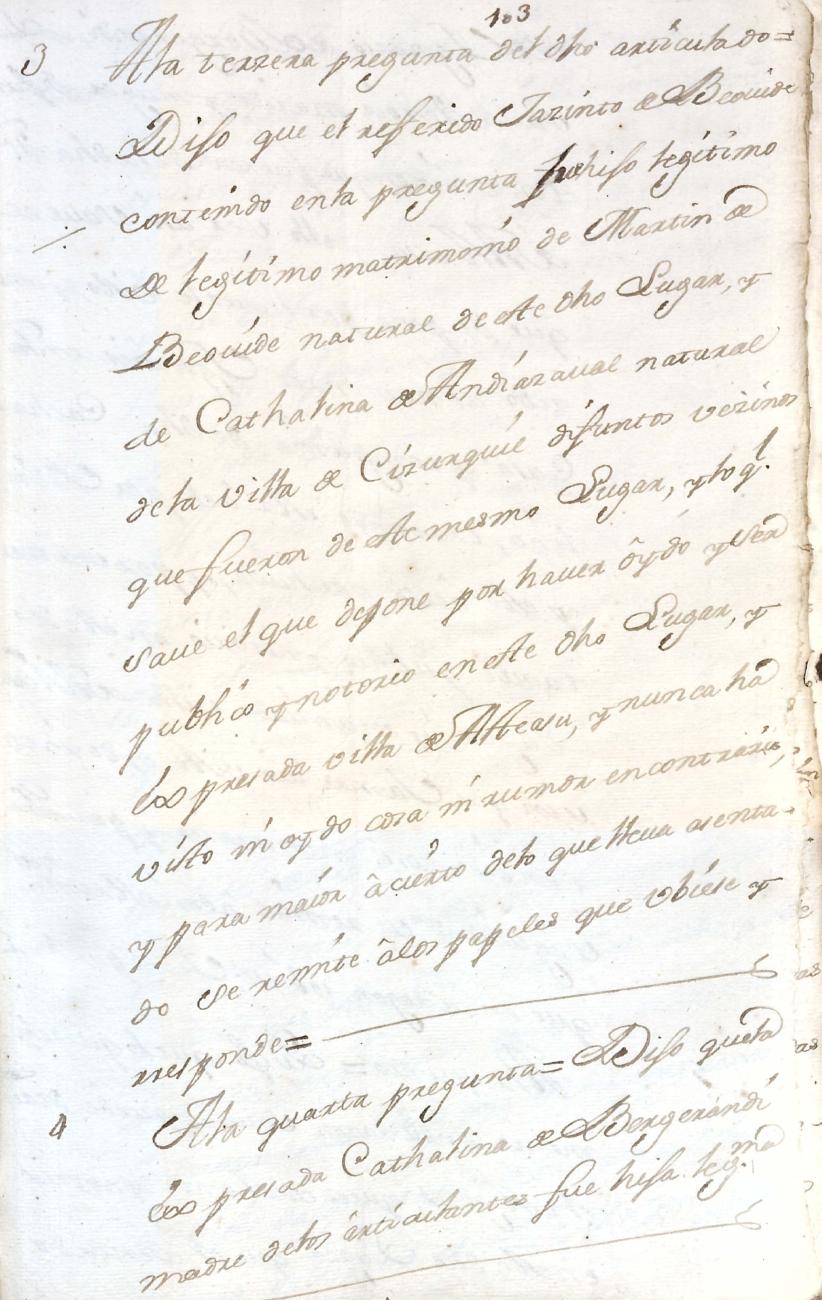 103
3 A la terzera pregunta del dho articulado=
Dijo que el refferido Jazinto de Beovide
contenido en la pregunta fue hijo legitimo
de legitimo matrimonio de Martin de
Beovide natural de este dho Lugar, y
de Cathalina de Andiazaval natural
de la villa de Cizurquil difuntos vezinos
que fueron de este mesmo Lugar, y lo ql.
save el que depone por haver oydo y ser
publico y notorio en este dho Lugar, y
expresada villa de Alteasu, y nunca ha
visto ni oydo cosa ni rumor en contrario,
y para maior acierto de lo que lleva asenta-
do se remite a los papeles que ubiese y
rresponde=
4 A la quarta pregunta= Dijo que la
expresada Cathalina de Bergerandi
madre de los articulantes fue hija legma